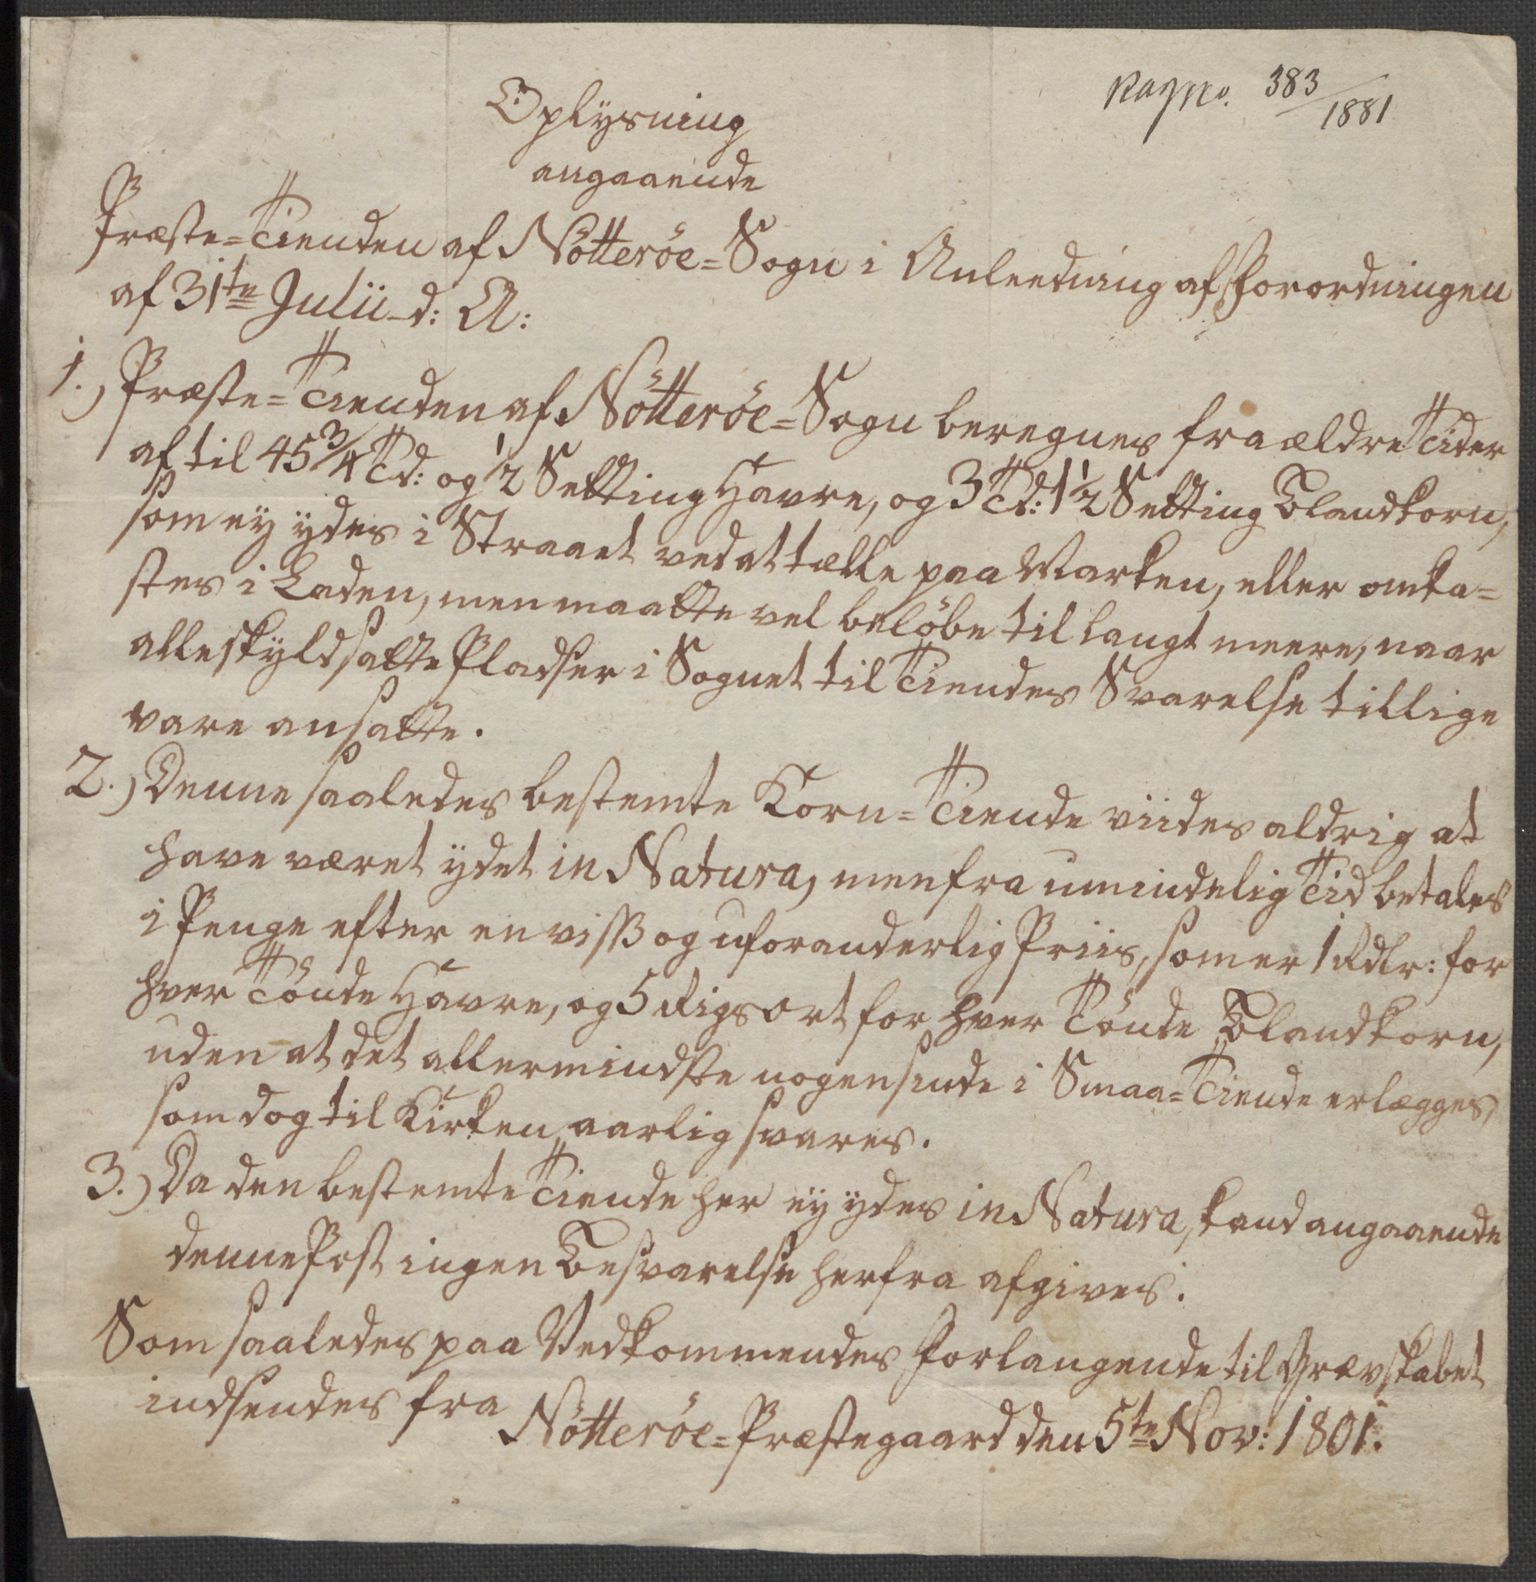 383
1881
Oplysning
angaaende
Præste=Tienden af Nötteröe=Sogn i Anleedning af Forordningen
af 31te Julii d: A:
1.) Præste=Tienden af Nötteröe=Sogn beregnes fra ældre Tider
af til 45 3/4 Td: og 1/2 Setting Havre, og 3 Td: 1 1/2 Setting Blandkorn,
som ey ydes i Straaet ved at tælle paa Marken, eller omka=
stes i Laden, men maatte vel belöbe til langt meere, naar
alle skyldsatte Pladser i Sognet til Tiendes Svarelse tillige
vare ansatte.
2.) Denne saaledes bestemte Korn=Tiende viides aldrig at
have været ÿdet in Natura, men fra umindelig Tid betales
i Penge efter en viss og uforanderlig Priis, som er 1 Rdlr: for
hver Tönde Havre, og 5 Rigsort for hver Tönde Blandkorn,
uden at det allermindste nogensinde i Smaa=Tiende erlægges,
som dog til Kirken aarlig svares.
3.) Da den bestemte Tiende her eÿ ydes in Natura, kand angaaende
denne Post ingen Besvarelse herfra afgives.
Som saaledes paa Vedkommendes Forlangende til Grævskabet
indsendes fra
Nötteröe=Præstegaard den 5te Nov: 1801.